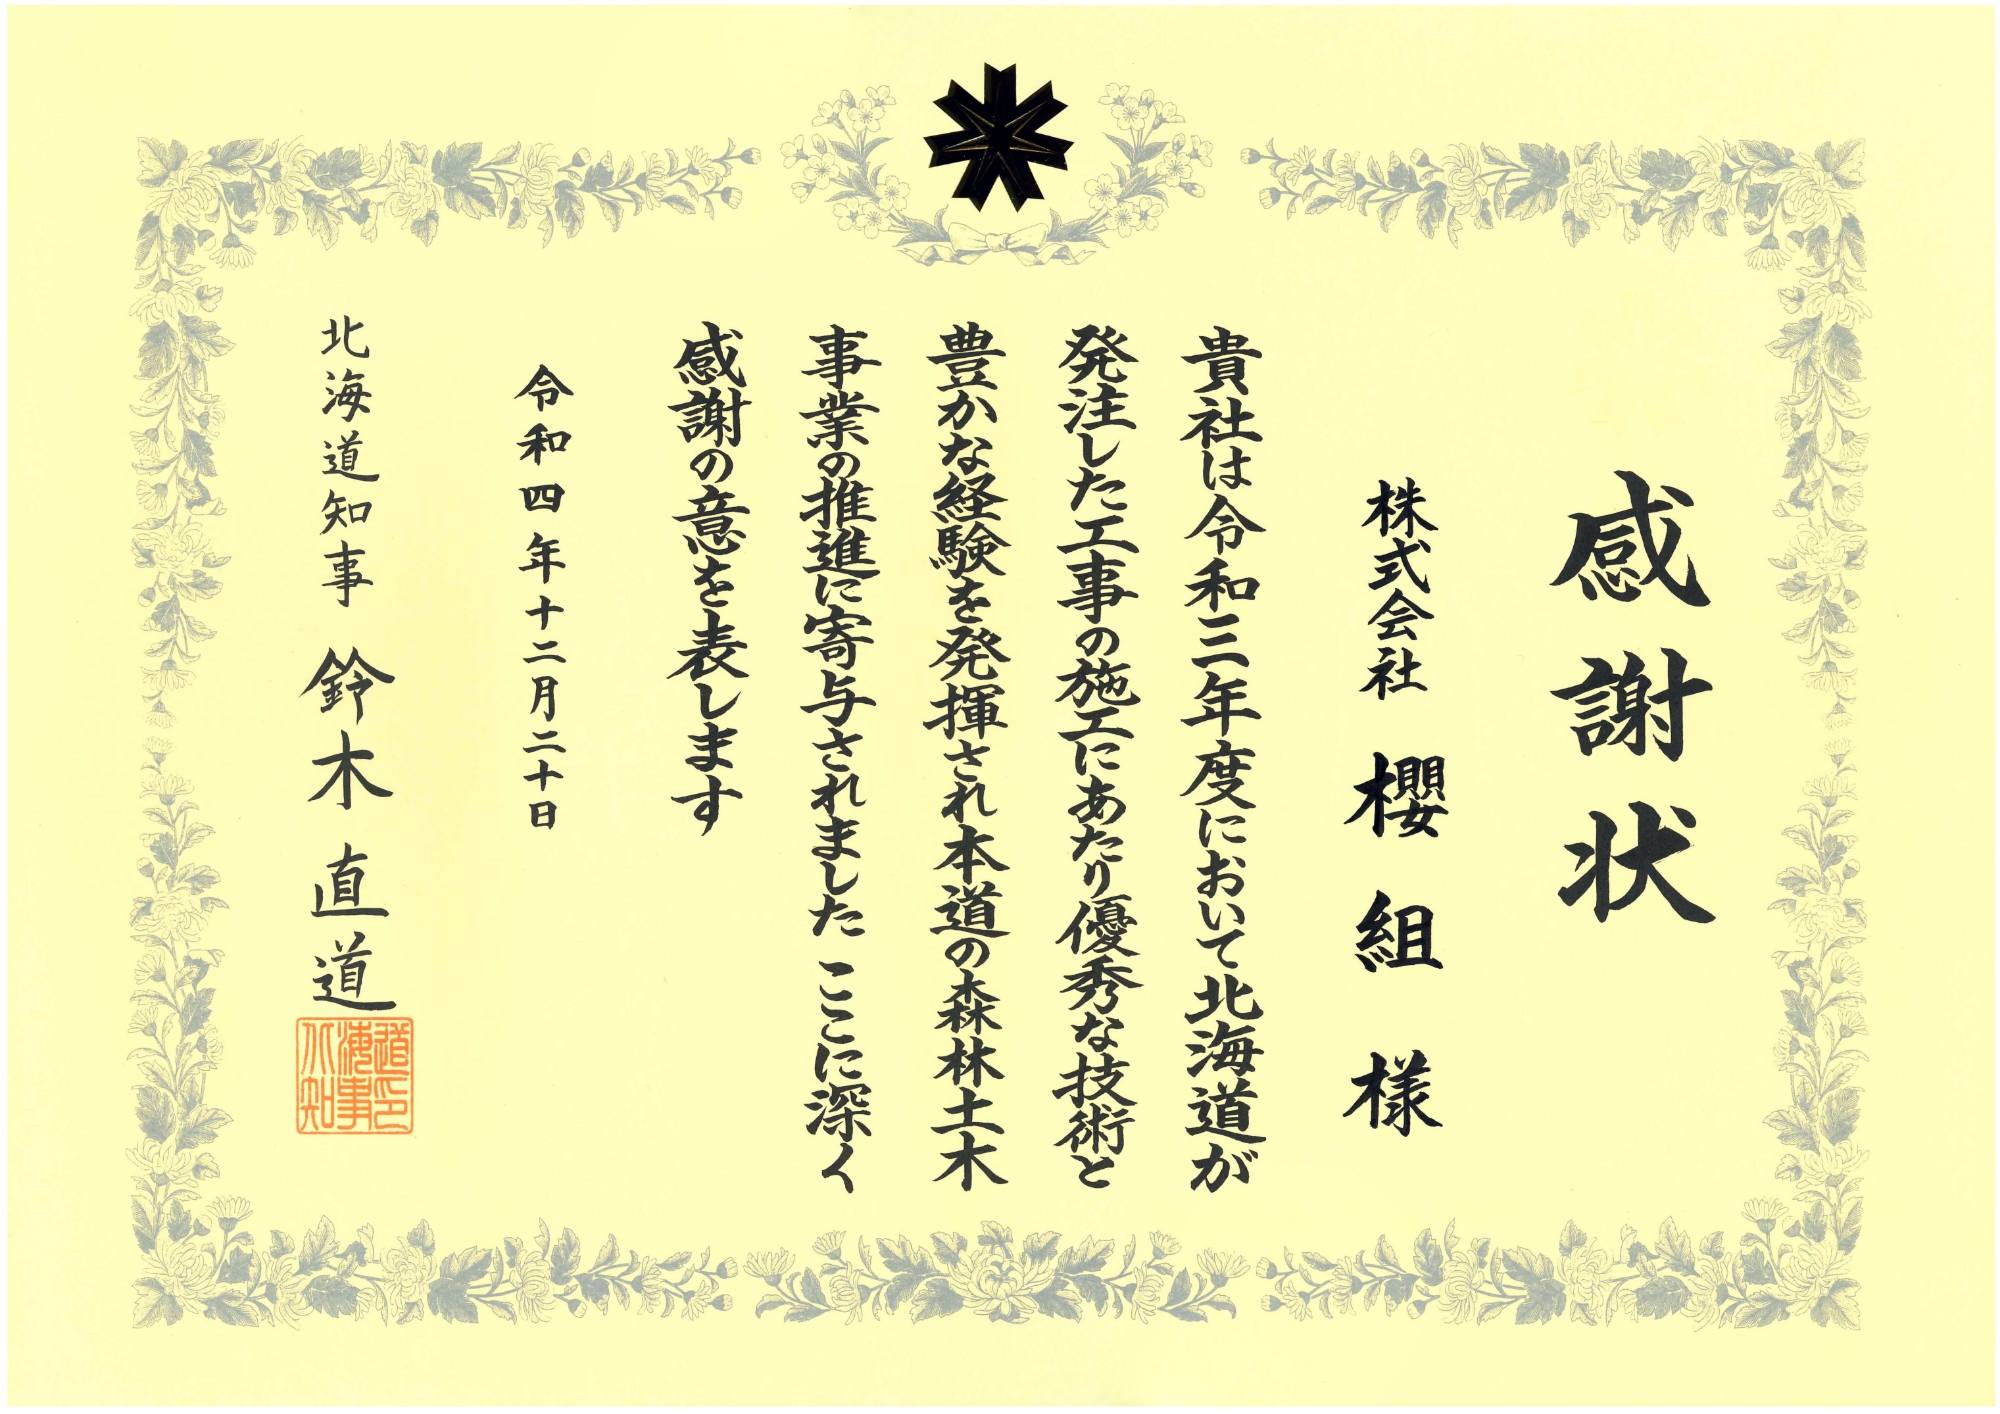 感謝状
株式会社 櫻組様
貴社は令和三年度において北海道が
発注した工事の施工にあたり優秀な技術と
豊かな経験を発揮され本道の森林土木
事業の推進に寄与されました ここに深く
感謝の意を表します
令和四年十二月二十日
北海道知事 鈴木直道
北海道知事印